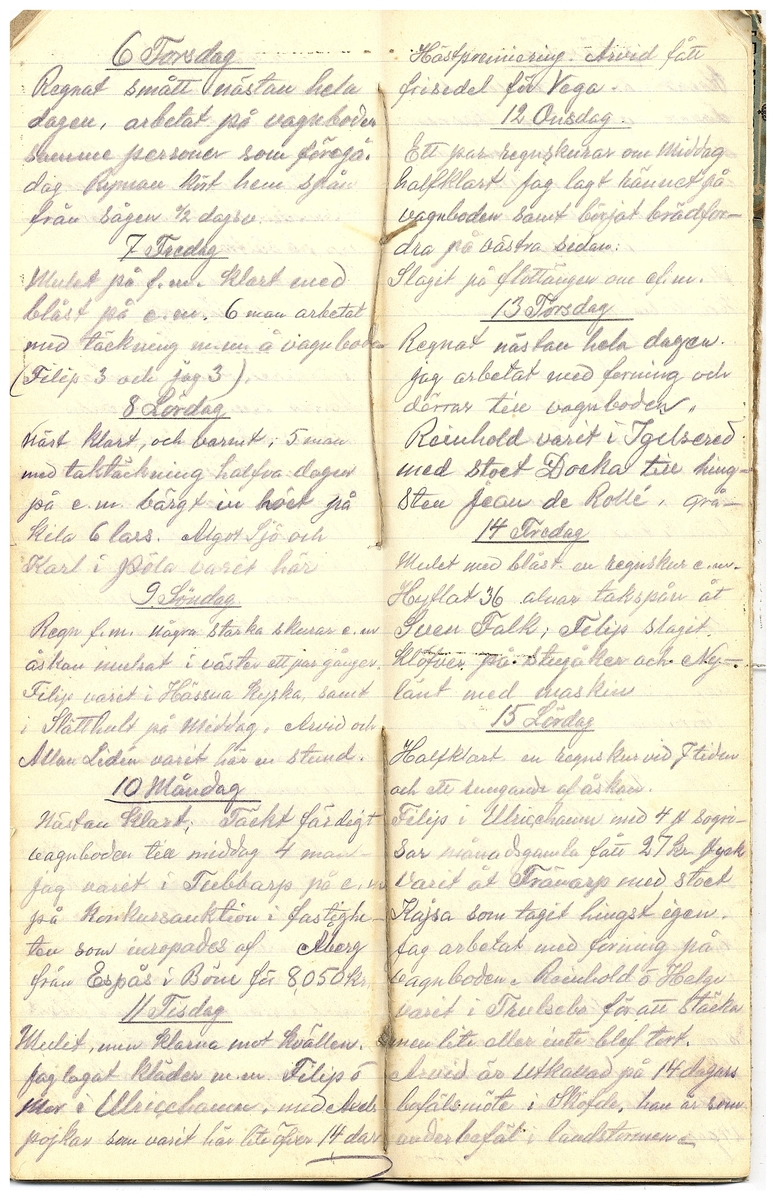 6 Torsdag
Regnat smått nästan hela
dagen, arbetat på vagnboden
samme personer som föregå.
dag Ryman kört hem spån
från sågen 1/2 dagsv.
7 Fredag
Mulet på f.m. klart med
blåst på e.m. 6 man arbetat
med täckning m.m. å vagnboden
(Filip 3 och jag 3).
8 Lördag
Näst klart, och varmt, 5 man
med taktäckning halfva dagen
på e.m. bärgt in höet på
Kila 6 lass. Algot Sjö och
Karl i Höla varit här
9 Söndag
Regn f.m. några starka skurar e.m
åskan mutrat i väster ett par gånger.
Filip varit i Hössna kyrka, samt
i Slätthult på Middag, Arvid och
Allan Lidén varit här en stund.
10 Måndag
Nästan klart; Täckt färdigt
vagnboden till middag 4 man
jag varit i Tubbarp på e.m
på konkursauktion i fastighe-
ten som inropades af Åberg
från Espås i Böne för 8,050 kr.
11 Tisdag
Mulet, men klarna mot kvällen.
Jag lagat kläder m.m. Filip o
Mor i Ulricehamn, med Axels
pojkar som varit här lite öfver 14 dar
Hästpremiering. Arvid fått
frisedel för Vega.
12 Onsdag.
Ett par regnskurar om Middag
halfklart jag lagt rännet på
vagnboden samt börjat brädfor-
dra på västra sidan.
Slagit på flottängen om ef.m.
13 Torsdag
Regnat nästan hela dagen.
jag arbetat med forning och
dörrar till vagnboden,,
Reinhold varit i Igelsered
med stoet Docka till hing-
sten Jean de Rollé, grå-
14 Fredag
Mulet med blåst en regnskur e.m.
Hyflat 36 alnar takspån åt
Sven Falk, Filip slagit
klöfver på stugåker och Ny-
länt med maskin
15 Lördag
Halfklart en regnskur vid 7 tiden
och ett rungande af åskan.
Filip i Ulricehamn med 4 st sogri-
sar månadsgamla fått 27 kr styck
Varit åt Tränarp med stoet
Kajsa som tagit hingst igen.
Jag arbetat med forning på
vagnboden. Reinhold o Helge
varit i Trulsebo för att stäcka
men lite eller inte blef tort.
Arvid är utkallad på 14 dagars
befälsmöte i Sköfde, han är som
underbefäl i landstormen